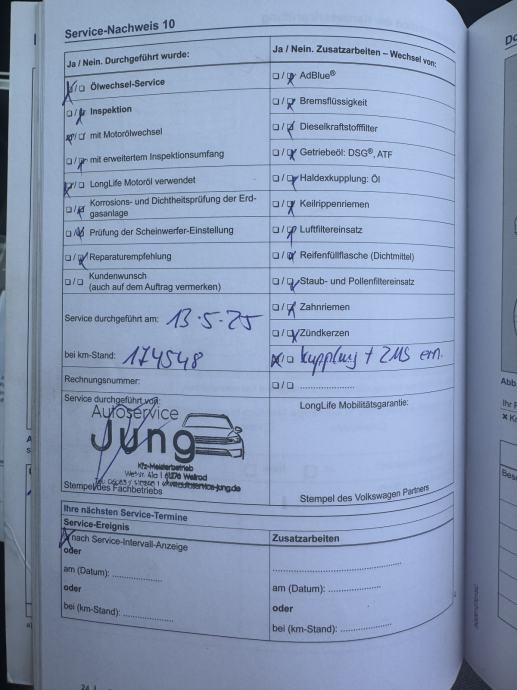 Service-Nachweis 10
Ja / Nein. Durchgeführt wurde:
☒/☐ Ölwechsel-Service
☐/☒ Inspektion
☒/☐ mit Motorölwechsel
☐/☒ mit erweitertem Inspektionsumfang
☒/☐ LongLife Motoröl verwendet
☐/☒ Korrosions- und Dichtheitsprüfung der Erd-
gasanlage
☐/☒ Prüfung der Scheinwerfer-Einstellung
☐/☒ Reparaturempfehlung
☐/☐ Kundenwunsch
(auch auf dem Auftrag vermerken)
Service durchgeführt am: 13.5.25
bei km-Stand: 174548
Rechnungsnummer:
Service durchgeführt von:
Autoservice
Jung
Kfz-Meisterbetrieb
Stempel des Fachbetriebs
Ja / Nein. Zusatzarbeiten – Wechsel von:
☐/☒ AdBlue®
☐/☒ Bremsflüssigkeit
☐/☒ Dieselkraftstofffilter
☐/☒ Getriebeöl: DSG®, ATF
☐/☒ Haldexkupplung: Öl
☐/☒ Keilrippenriemen
☐/☒ Luftfiltereinsatz
☐/☒ Reifenfüllflasche (Dichtmittel)
☐/☒ Staub- und Pollenfiltereinsatz
☐/☒ Zahnriemen
☐/☒ Zündkerzen
☒/☐ Kupplung + ZMS ern.
☐/☐ ......................
LongLife Mobilitätsgarantie:
Stempel des Volkswagen Partners
Ihre nächsten Service-Termine
Service-Ereignis
☒ nach Service-Intervall-Anzeige
oder
am (Datum): ......................
oder
bei (km-Stand): ......................
Zusatzarbeiten
......................
am (Datum): ......................
oder
bei (km-Stand): ......................